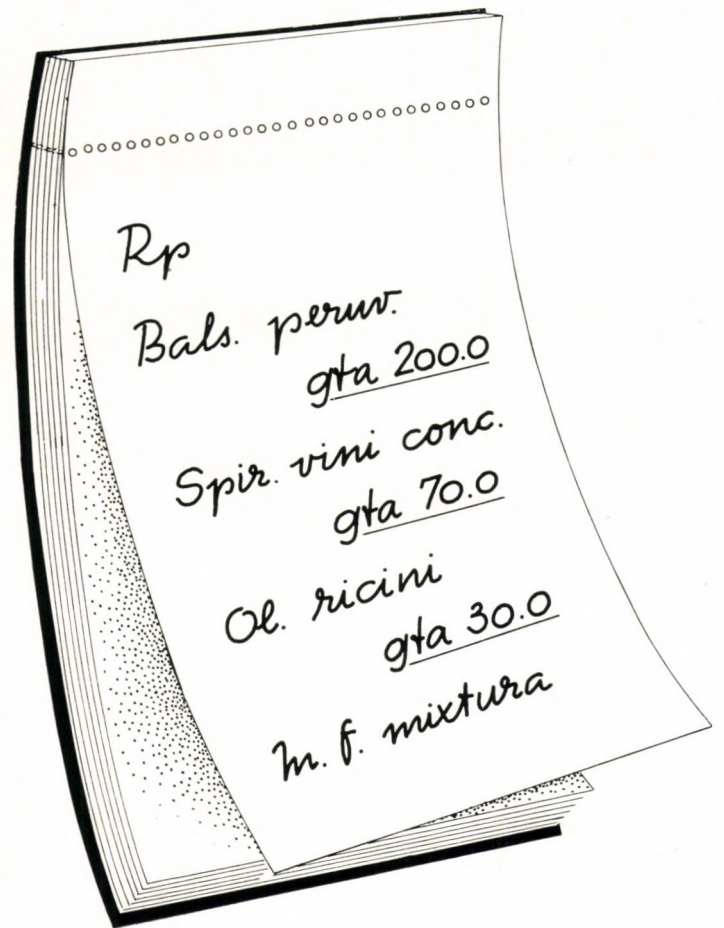 Rp
Bals. peruv.
gta 200.0
Spir. vini conc.
gta 70.0
Ol. ricini
gta 30.0
m. f. mixtura